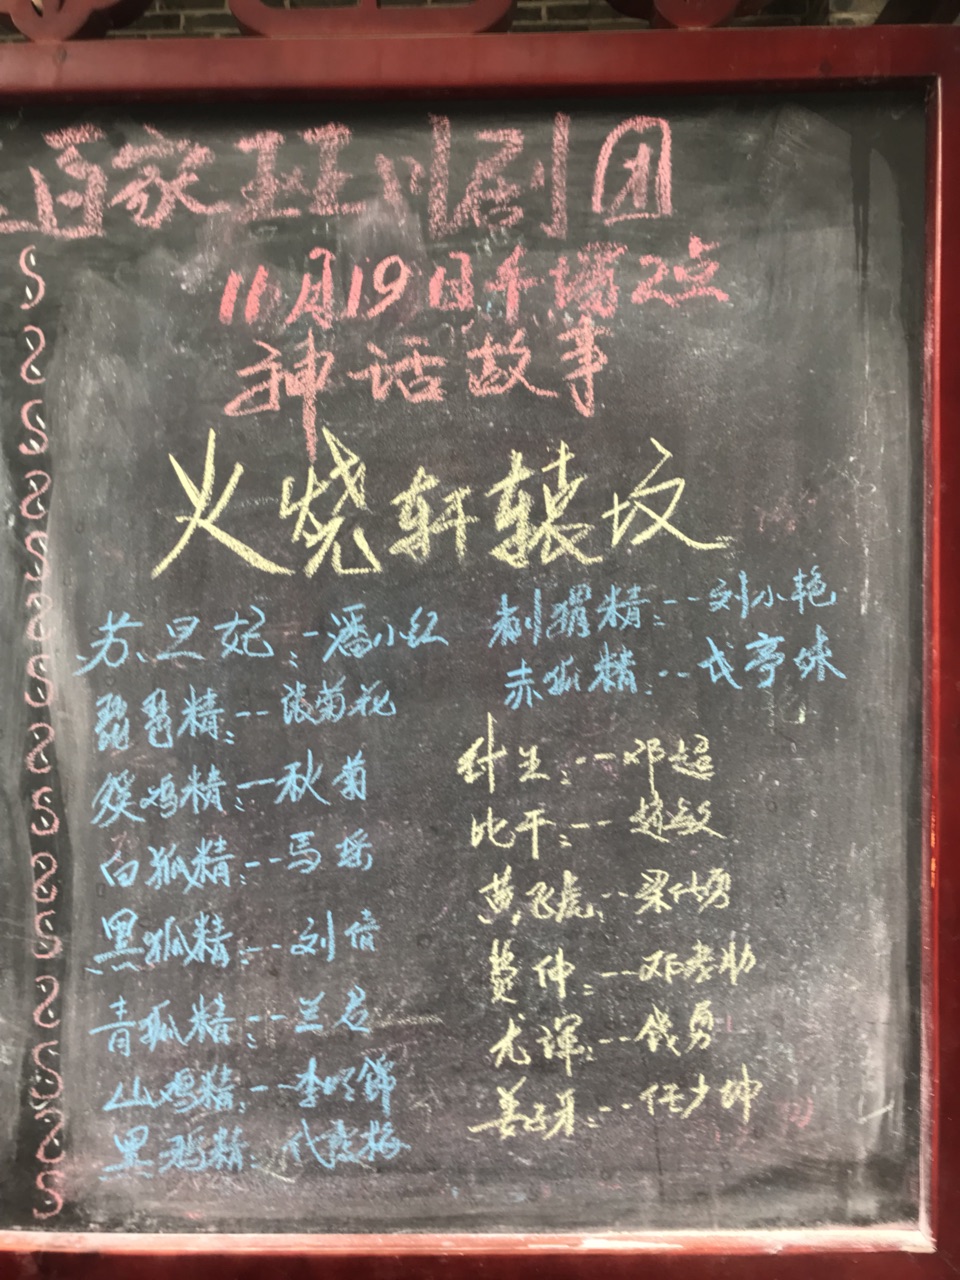 百家班川剧团
11月19日午场2点
神话故事
火烧轩辕坟
苏旦妃：-潘小红
琵琶精：--张菊花
癸鸡精：-秋菊
白狐精：--马瑶
黑狐精：--刘倩
青狐精：--兰君
山鸡精：--李明锦
黑鸡精：代
刺猬精：--刘小艳
赤狐精：--戈亭妹
纣王：--邓超
比干：--赵敏
黄飞虎：--梁仕勇
费仲：--邓孝勋
尤浑：--钱勇
姜子牙：--任少坤